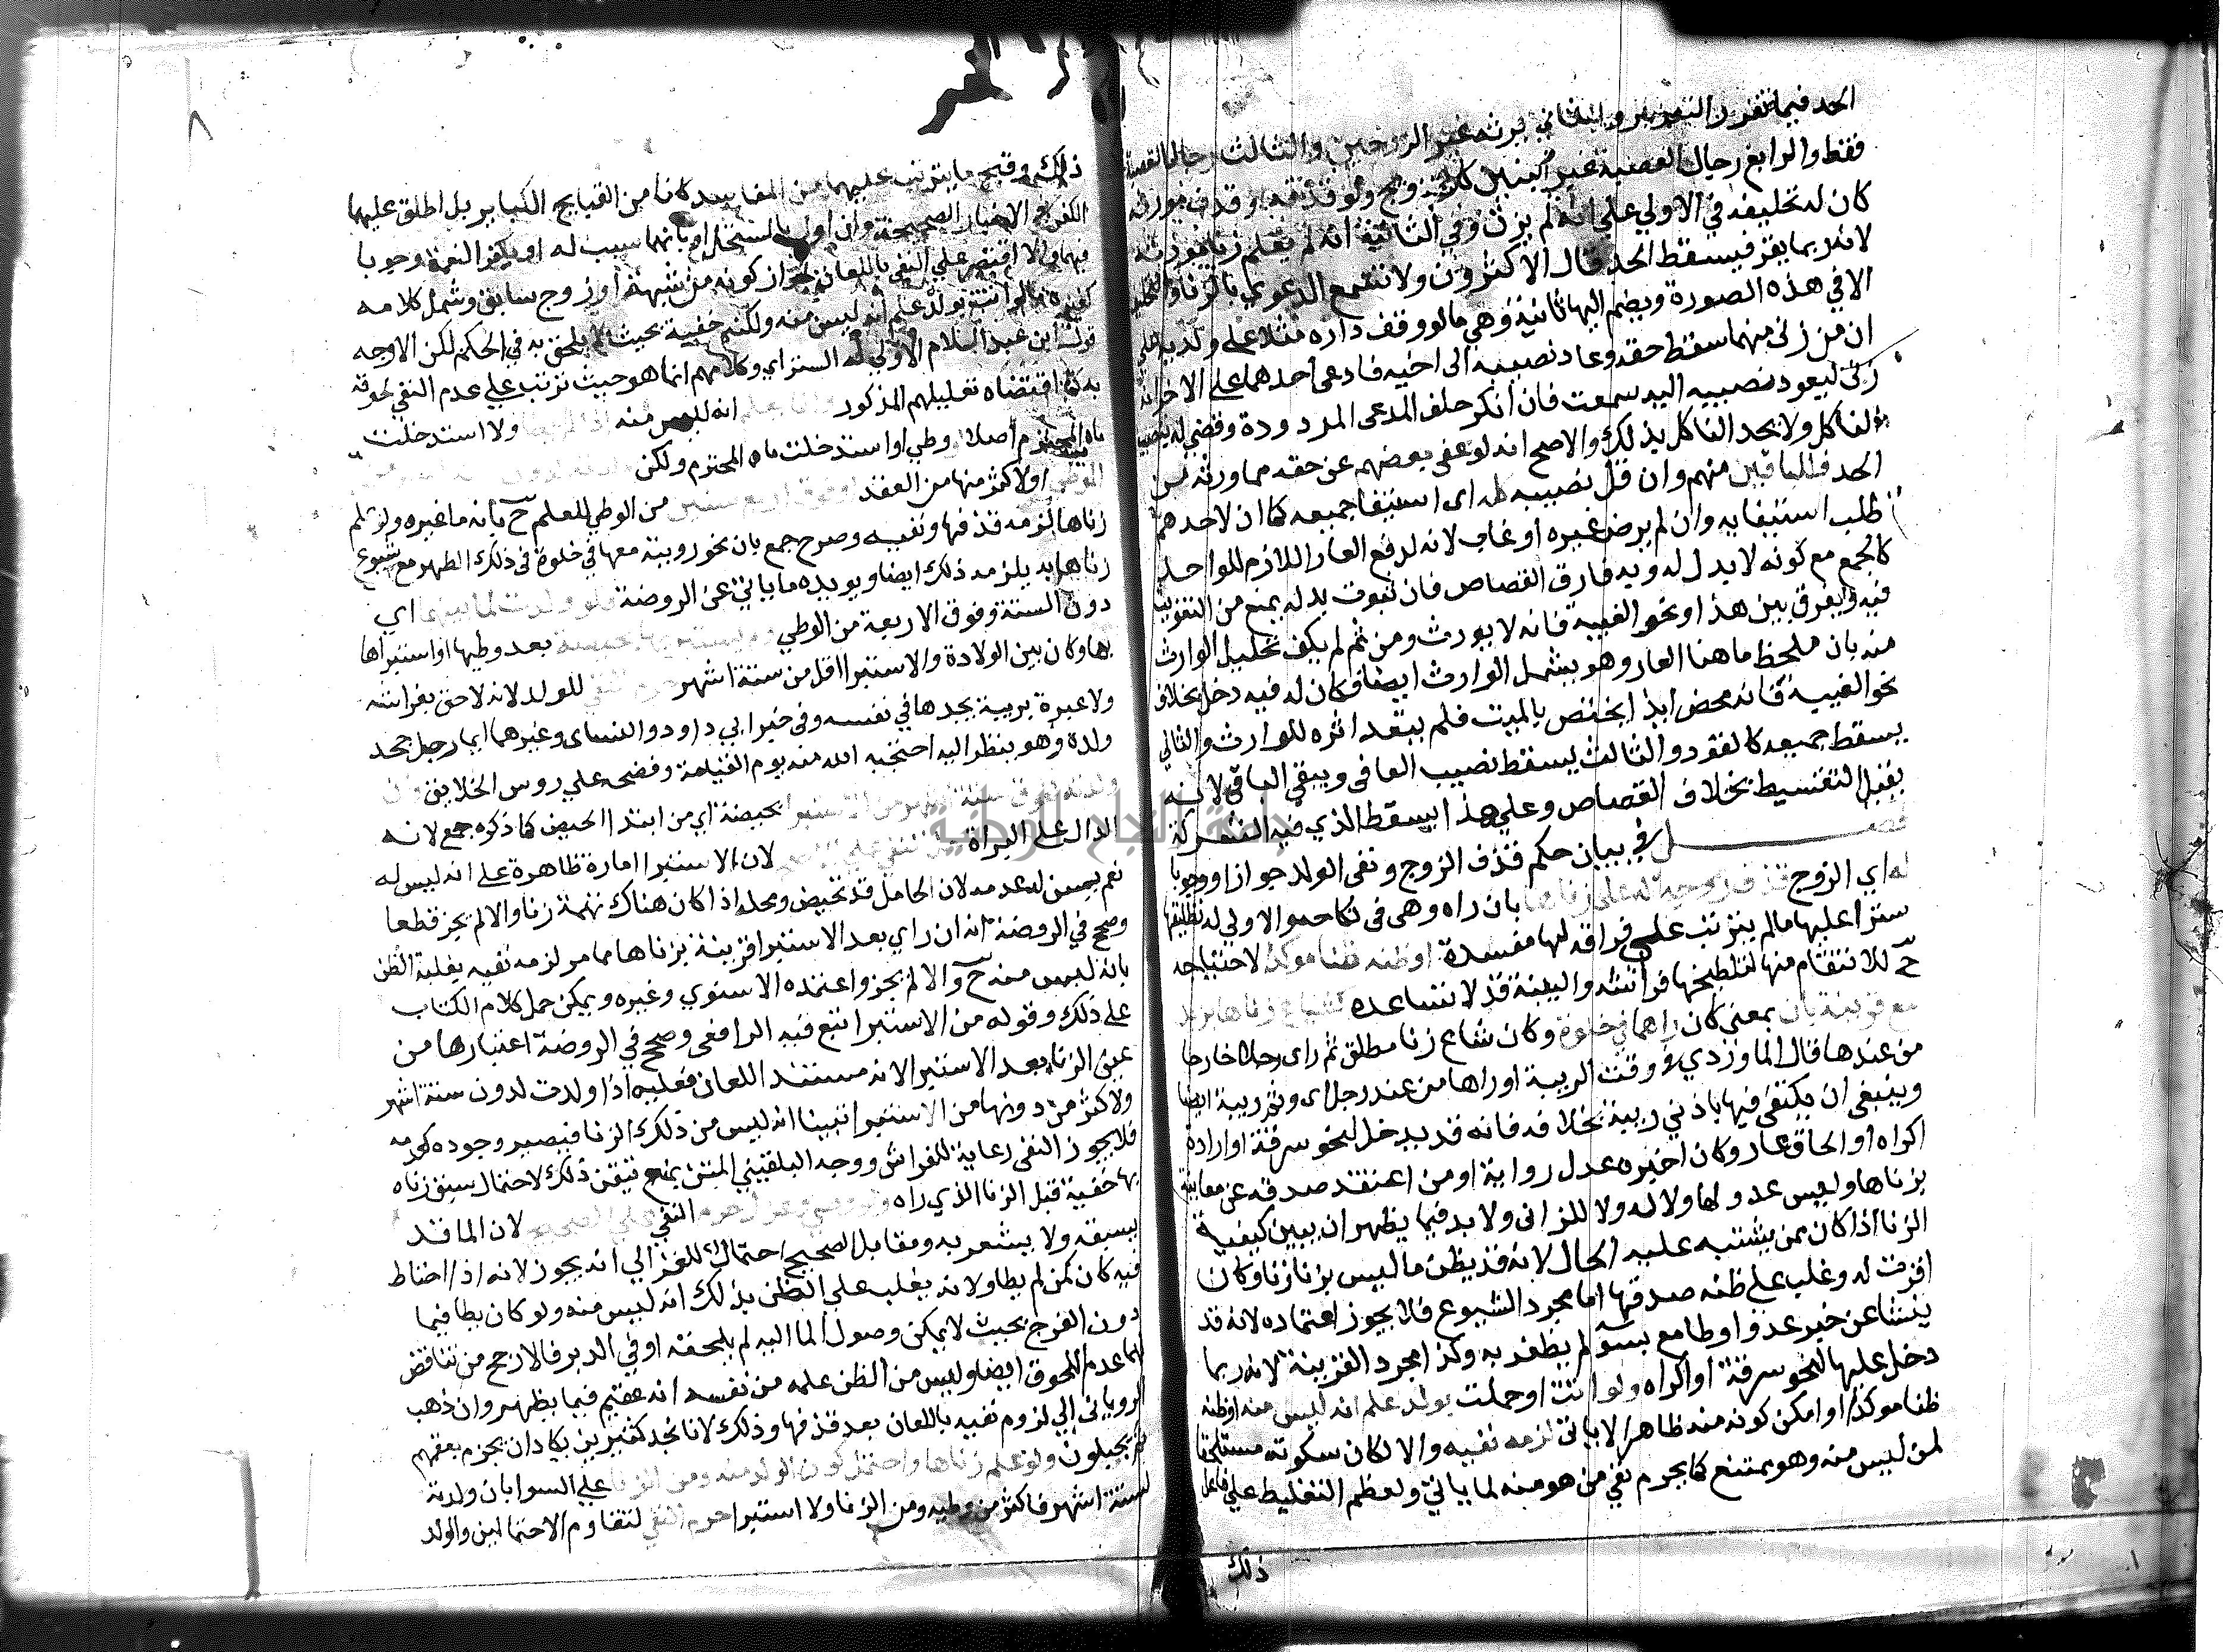 الحد فيما تقرر التعزير والثاني يرثه غير الزوجين والثالث رجال العصبة
فقط والرابع رجال العصبة غير البنين كالتزويج ولو قذفه او قذف مورثه
كان له تحليفه في الاولي علي انه لم يزن وفي الثانية انه لم يعلم زنا مورثه
لانه ربما يقر فيسقط الحد قال الاكثرون ولا تسمع الدعوي بالزنا والتحليف
الا في هذه الصورة ويضم اليها ثانية وهي ما لو وقف داره مثلا علي ولديه علي
ان من زنى منهما سقط حقه وعاد نصيبه الى اخيه فادعى احدهما على الاخر انه
زنى ليعود نصيبه اليه سمعت فان انكر حلف المدعى المردودة وقضي له بنصيب
الناكل ولا يحد الناكل بذلك والاصح انه لو عفى بعضهم عن حقه مما ورثه من
الحد فللباقين منهم وان قل نصيبه كله اى استيفا جميعه كما ان لاحدهم
طلب استيفايه وان لم يرض غيره او غاب لانه لدفع العار اللازم للواحد
كالجمع مع كونه لا بدل له وبه فارق القصاص فان ثبوت بدله يمنع من التفويت
فيه ويفرق بين هذا ونحو الغيبة فانه لا يورث ومن ثم لم يكف تحليل الوارث
منه بان ملحظ ما هنا العار وهو يشمل الوارث ايضا فكان له فيه دخل بخلاف
نحو الغيبة فانه محض ايذا يختص بالميت فلم يتعد اثره للوارث والثاني
يسقط جميعه كالقود والثالث يسقط نصيب العافى ويبقى الباقى لانه
يقبل التقسيط بخلاف القصاص وعلي هذا يسقط الذي فيه الشركة
فصل في بيان حكم قذف الزوج ونفى الولد جوازا ووجوبا
له اي الزوج قذف زوجه له علم زناها بان راه وهى فى نكاحه والاولي له تطليقها
سترا عليها مالم يترتب على فراقه لها مفسدة او ظنه ظنا موكدا لاحتياجه
ح للانتقام منها لتلطيخها فراشه والبينة قد لا تساعده كشياع زناها بزيد
مع قرينة بان بمعنى كان راهما في خلوة وكان شاع زنا مطلق ثم راى رجلا خارجا
من عندها قال الماوردي في وقت الريبة او راها من عند رجل اى وثم ريبة ايضا
وينبغى ان يكتفى فيها بادني ريبة بخلافه فانه قد يدخل لنحو سرقة او ارادة
اكراه او الحاق عار وكان اخبره عدل رواية او من اعتقد صدقه عن معاينة
بزناها وليس عدوا لها ولا له ولا للزانى ولا بد فيما يظهر ان يبين كيفية
الزنا اذا كان ممن يشتبه عليه الحال لانه قد يظن ما ليس بزنا زنا وكان
اقرت له وغلب على ظنه صدقها اما مجرد الشيوع فلا يجوز اعتماده لانه قد
ينشا عن خبر عدو او طامع بسؤ لم يظفر به وكذا مجرد القرينة لانه ربما
دخل عليها لنحو سرقة او اكراه ولو اتت او حملت بولد علم انه ليس منه او ظنه
ظنا موكدا وامكن كونه منه ظاهرا لما ياتى لزمه نفيه والا لكان سكوته مستلحقا
لمن ليس منه وهو ممتنع كما يحرم نفي من هو منه لما ياتي ولعظم التغليط على فاعل
ذلك
ذلك وقبح ما يترتب عليهما من المفاسد كانا من القبايح الكباير بل اطلق عليهما
الكفر في الاخبار الصحيحة وان اول بالمستحل او بانهما سبب له او بكفر النعمة وجوبا
فيهما والا اقتصر علي النفي باللعان لجواز كونه من شبهة او زوج سابق وشمل كلامه
كغيره ما لو اتت بولد علم انه ليس منه ولكنه خفية بحيث لا يلحق به في الحكم لكن الاوجه
قول ابن عبد السلام الاولي له الستر اي وكلامهم انما هو حيث ترتب علي عدم النفي لحوقه
به كما اقتضاه تعليلهم المذكور انه ليس منه ولا استدخلت
ماه المحترم اصلا وطي او استدخلت ماه المحترم ولكن
اولا كثر منها من العقد اربع سنين من الوطي للعلم ح بانه من غيره ولو علم
زناها لزمه قذفها ونفيه وصرح جمع بان نحو روية معها في خلوة فى ذلك الطهر مع شيوع
زناها به يلزمه ذلك ايضا ويويده ما ياتى عن الروضة ولو ولدت لما بينهما اي
دون الستة وفوق الاربعة من الوطي بحيضة بعد وطيها او استبراها
بها وكان بين الولادة والاستبرا اقل من ستة اشهر حرم النفي للولد لانه لاحق بفراشه
ولا عبرة بريبة يجدها في نفسه وفى خبر ابي داود والنساى وغيرهما ايما رجل جحد
ولده وهو ينظر اليه احتجب الله منه يوم القيامة وفضحه علي روس الخلايق وان
ولدته لفوق ستة اشهر من الاستبرا بحيضة اي من ابتدا الحيض كما ذكره جمع لانه
الدال على البراة لان الاستبرا امارة ظاهرة على انه ليس له
نعم يسن له عدمه لان الحامل قد تحيض ومحله اذا كان هناك تهمة زنا والا لم يجز قطعا
وصحح في الروضة انه ان راي بعد الاستبرا قرينة بزناها مما مر لزمه نفيه بغلبة الظن
بانه ليس منه ح والا لم يجز واعتمده الاسنوي وغيره ويمكن حمل كلام الكتاب
على ذلك وقوله من الاستبرا تبع فيه الرافعى وصحح في الروضة اعتبارها من
حين الزنا بعد الاستبرا لانه مستند اللعان فعليه اذا ولدت لدون ستة اشهر
ولاكثر من دونها من الاستبرا تبينا انه ليس من ذلك الزنا فيصير وجوده كعدمه
فلا يجوز النفى رعاية للفراش ووجه البلقيني المتن بمنع تيقن ذلك لاحتمال سبق زناه
بها خفية قبل الزنا الذي راه ولو وطي وعزل حرم النفي علي الصحيح لان الما قد
يسبقه ولا يشعر به ومقابل الصحيح احتمال للغزالي انه يجوز لانه اذا احتاط
فيه كان كمن لم يطا ولانه يغلب علي الظن بذلك انه ليس منه ولو كان يطا فيما
دون الفرج بحيث لا يمكن وصول الما اليه لم يلحقه او في الدبر فالارجح من تناقض
لهما عدم اللحوق ايضا وليس من الظن علمه من نفسه انه عقيم فيما يظهر وان ذهب
الروياني الي لزوم نفيه باللعان بعد قذفها وذلك لانا نجد كثيرين يكاد ان يجزم بعقمهم
ثم يحبلون ولو علم زناها واحتمل كون الولد منه ومن الزنا علي السوا بان ولدته
لستة اشهر فاكثر من وطيه ومن الزنا ولا استبرا حرم النفي لتقاوم الاحتمالين والولد
جامعة النجاح الوطنية